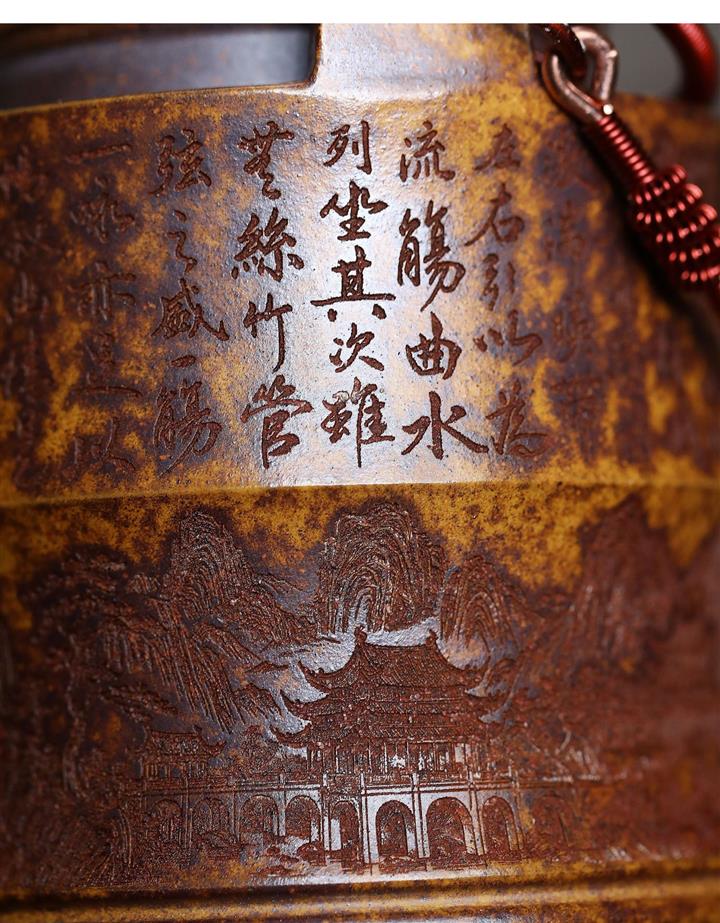 左右引以為
流觴曲水
列坐其次雖
無絲竹管
弦之盛一觴
一詠亦足以